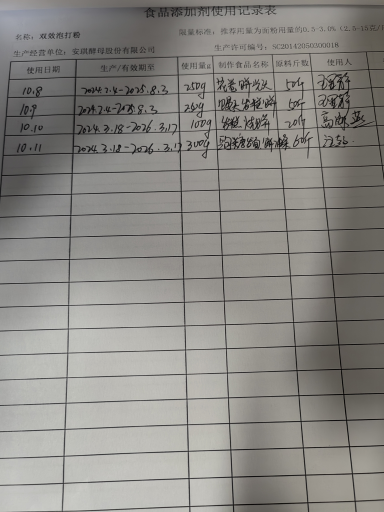 食品添加剂使用记录表
名称：双效泡打粉 限量标准：推荐用量为面粉用量的0.5-3.0%（2.5-15克/
生产经营单位：安琪酵母股份有限公司 生产许可编号：SC20142050300018
使用日期 生产/有效期至 使用量g 制作食品名称 原料斤数 使用人
10.8 2024.2.4-2025.8.3 250g 50斤
10.9 2024.2.4-2025.8.3 250g 50斤
10.10 2024.3.18-2026.3.17 100g 20斤
10.11 2024.3.18-2026.3.17 300g 60斤